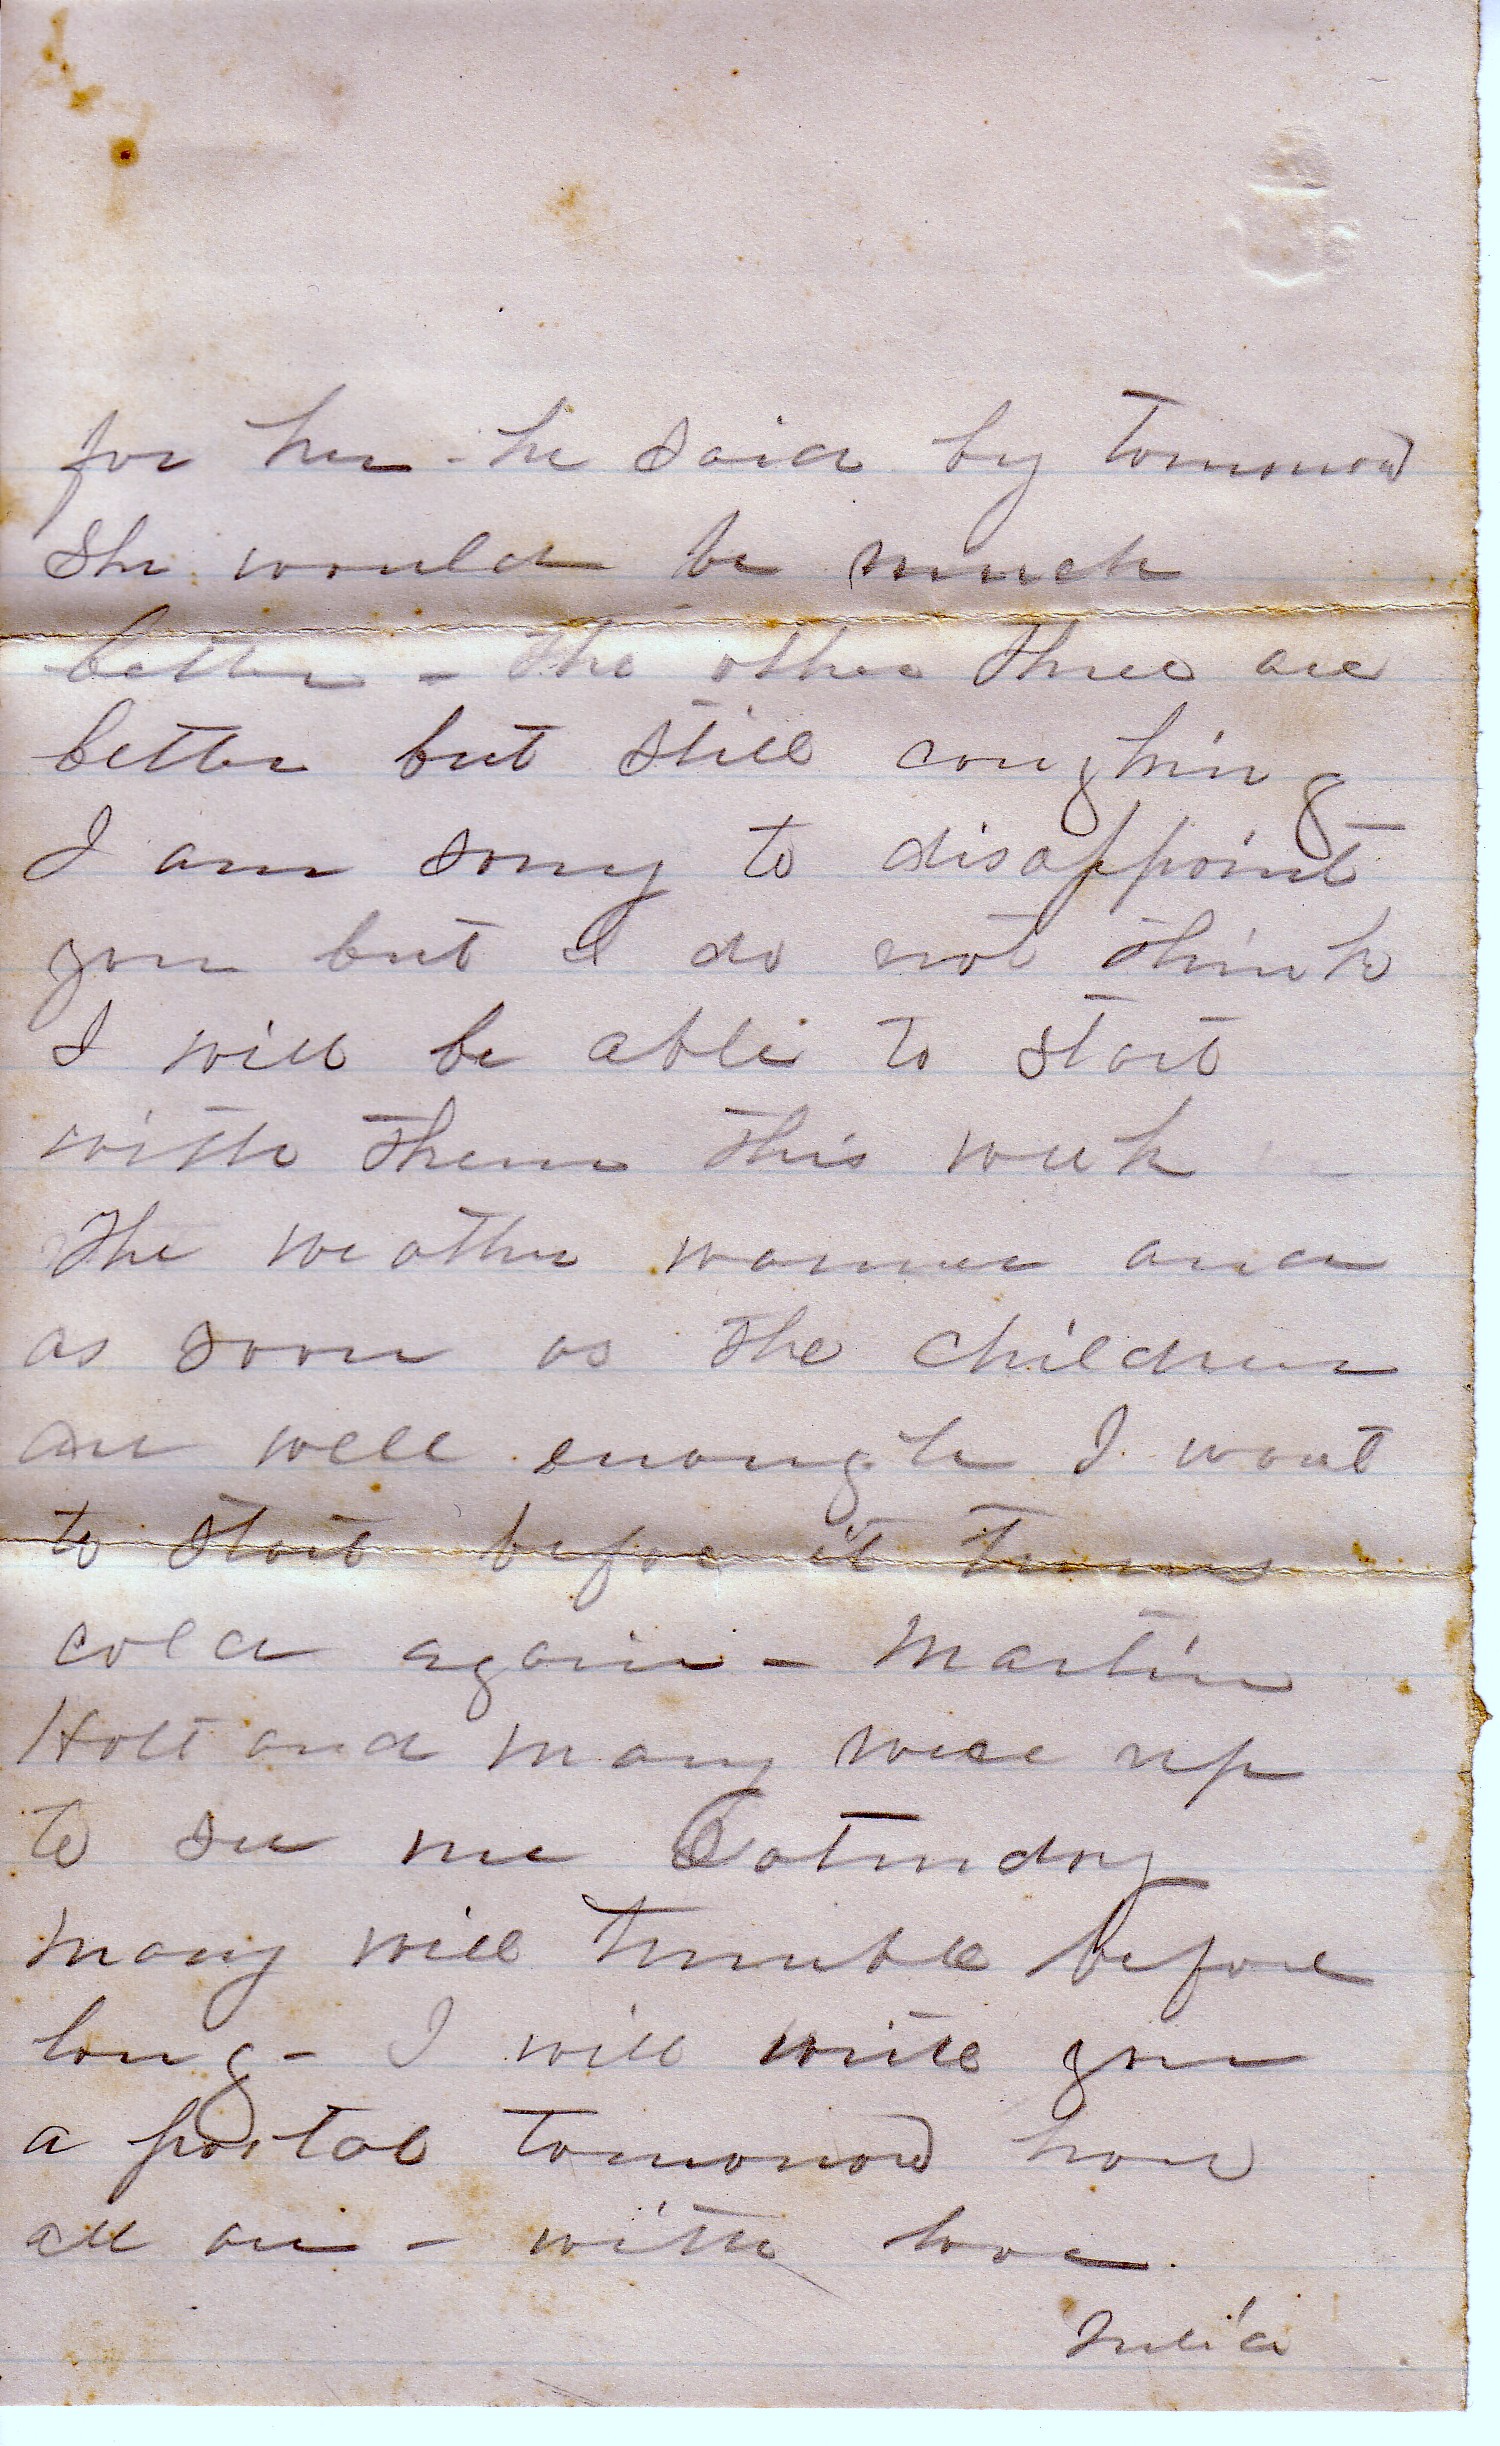 for her - he said by tomorrow
she would be much
better - the other three are
better but still coughing
I am sorry to disappoint
you but I do not think
I will be able to start
with them this week
the weather warmer and
as soon as the children
are well enough I want
to start before it turns
cold again - Martin
Holt and Mary were up
to see me Saturday
Mary will tumble before
long - I will write you
a postal tomorrow how
all are - with love
Julia